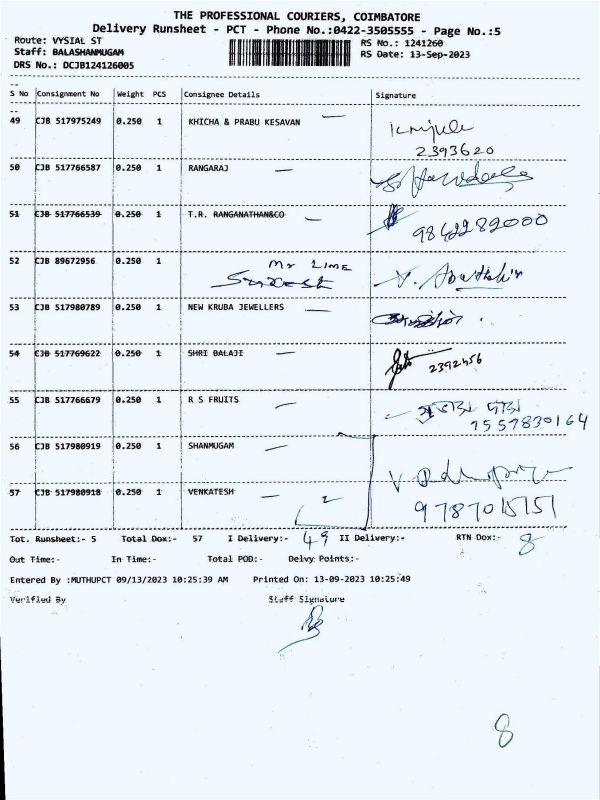 THE PROFESSIONAL COURIERS, COIMBATORE
Delivery Runsheet - PCT - Phone No.:0422-3505555 - Page No.:5
Route: VYSIAL ST
Staff: BALASHANMUGAM
DRS No.: DCJB124126005
RS No.: 1241260
RS Date: 13-Sep-2023
S No Consignment No Weight PCS Consignee Details Signature
49 CJB 517975249 0.250 1 KHICHA & PRABU KESAVAN
2393620
50 CJB 517766587 0.250 1 RANGARAJ
51 CJB 517766539 0.250 1 T.R. RANGANATHAN&CO 9842282000
52 CJB 89672956 0.250 1 Mr LIME
53 CJB 517980789 0.250 1 NEW KRUBA JEWELLERS
54 CJB 517769622 0.250 1 SHRI BALAJI 2392456
55 CJB 517766679 0.250 1 R S FRUITS
7557830164
56 CJB 517980919 0.250 1 SHANMUGAM
57 CJB 517980918 0.250 1 VENKATESH 2
Tot. Runsheet:- 5 Total Dox:- 57 I Delivery:- 49 II Delivery:- RTN Dox:- 8
Out Time:- In Time:- Total POD:- Delvy Points:-
Entered By :MUTHUPCT 09/13/2023 10:25:39 AM Printed On: 13-09-2023 10:25:49
Verified By Staff Signature
8